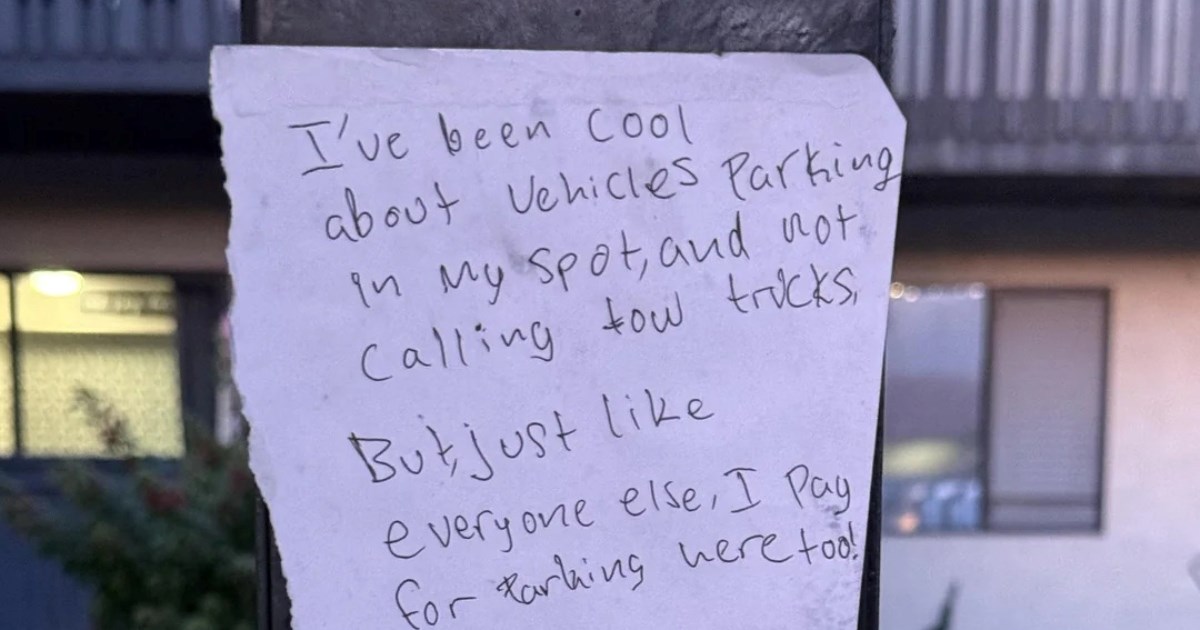 I've been cool
about Vehicles Parking
in My spot, and not
calling tow trucks,
But, just like
everyone else, I Pay
for Parking here too!